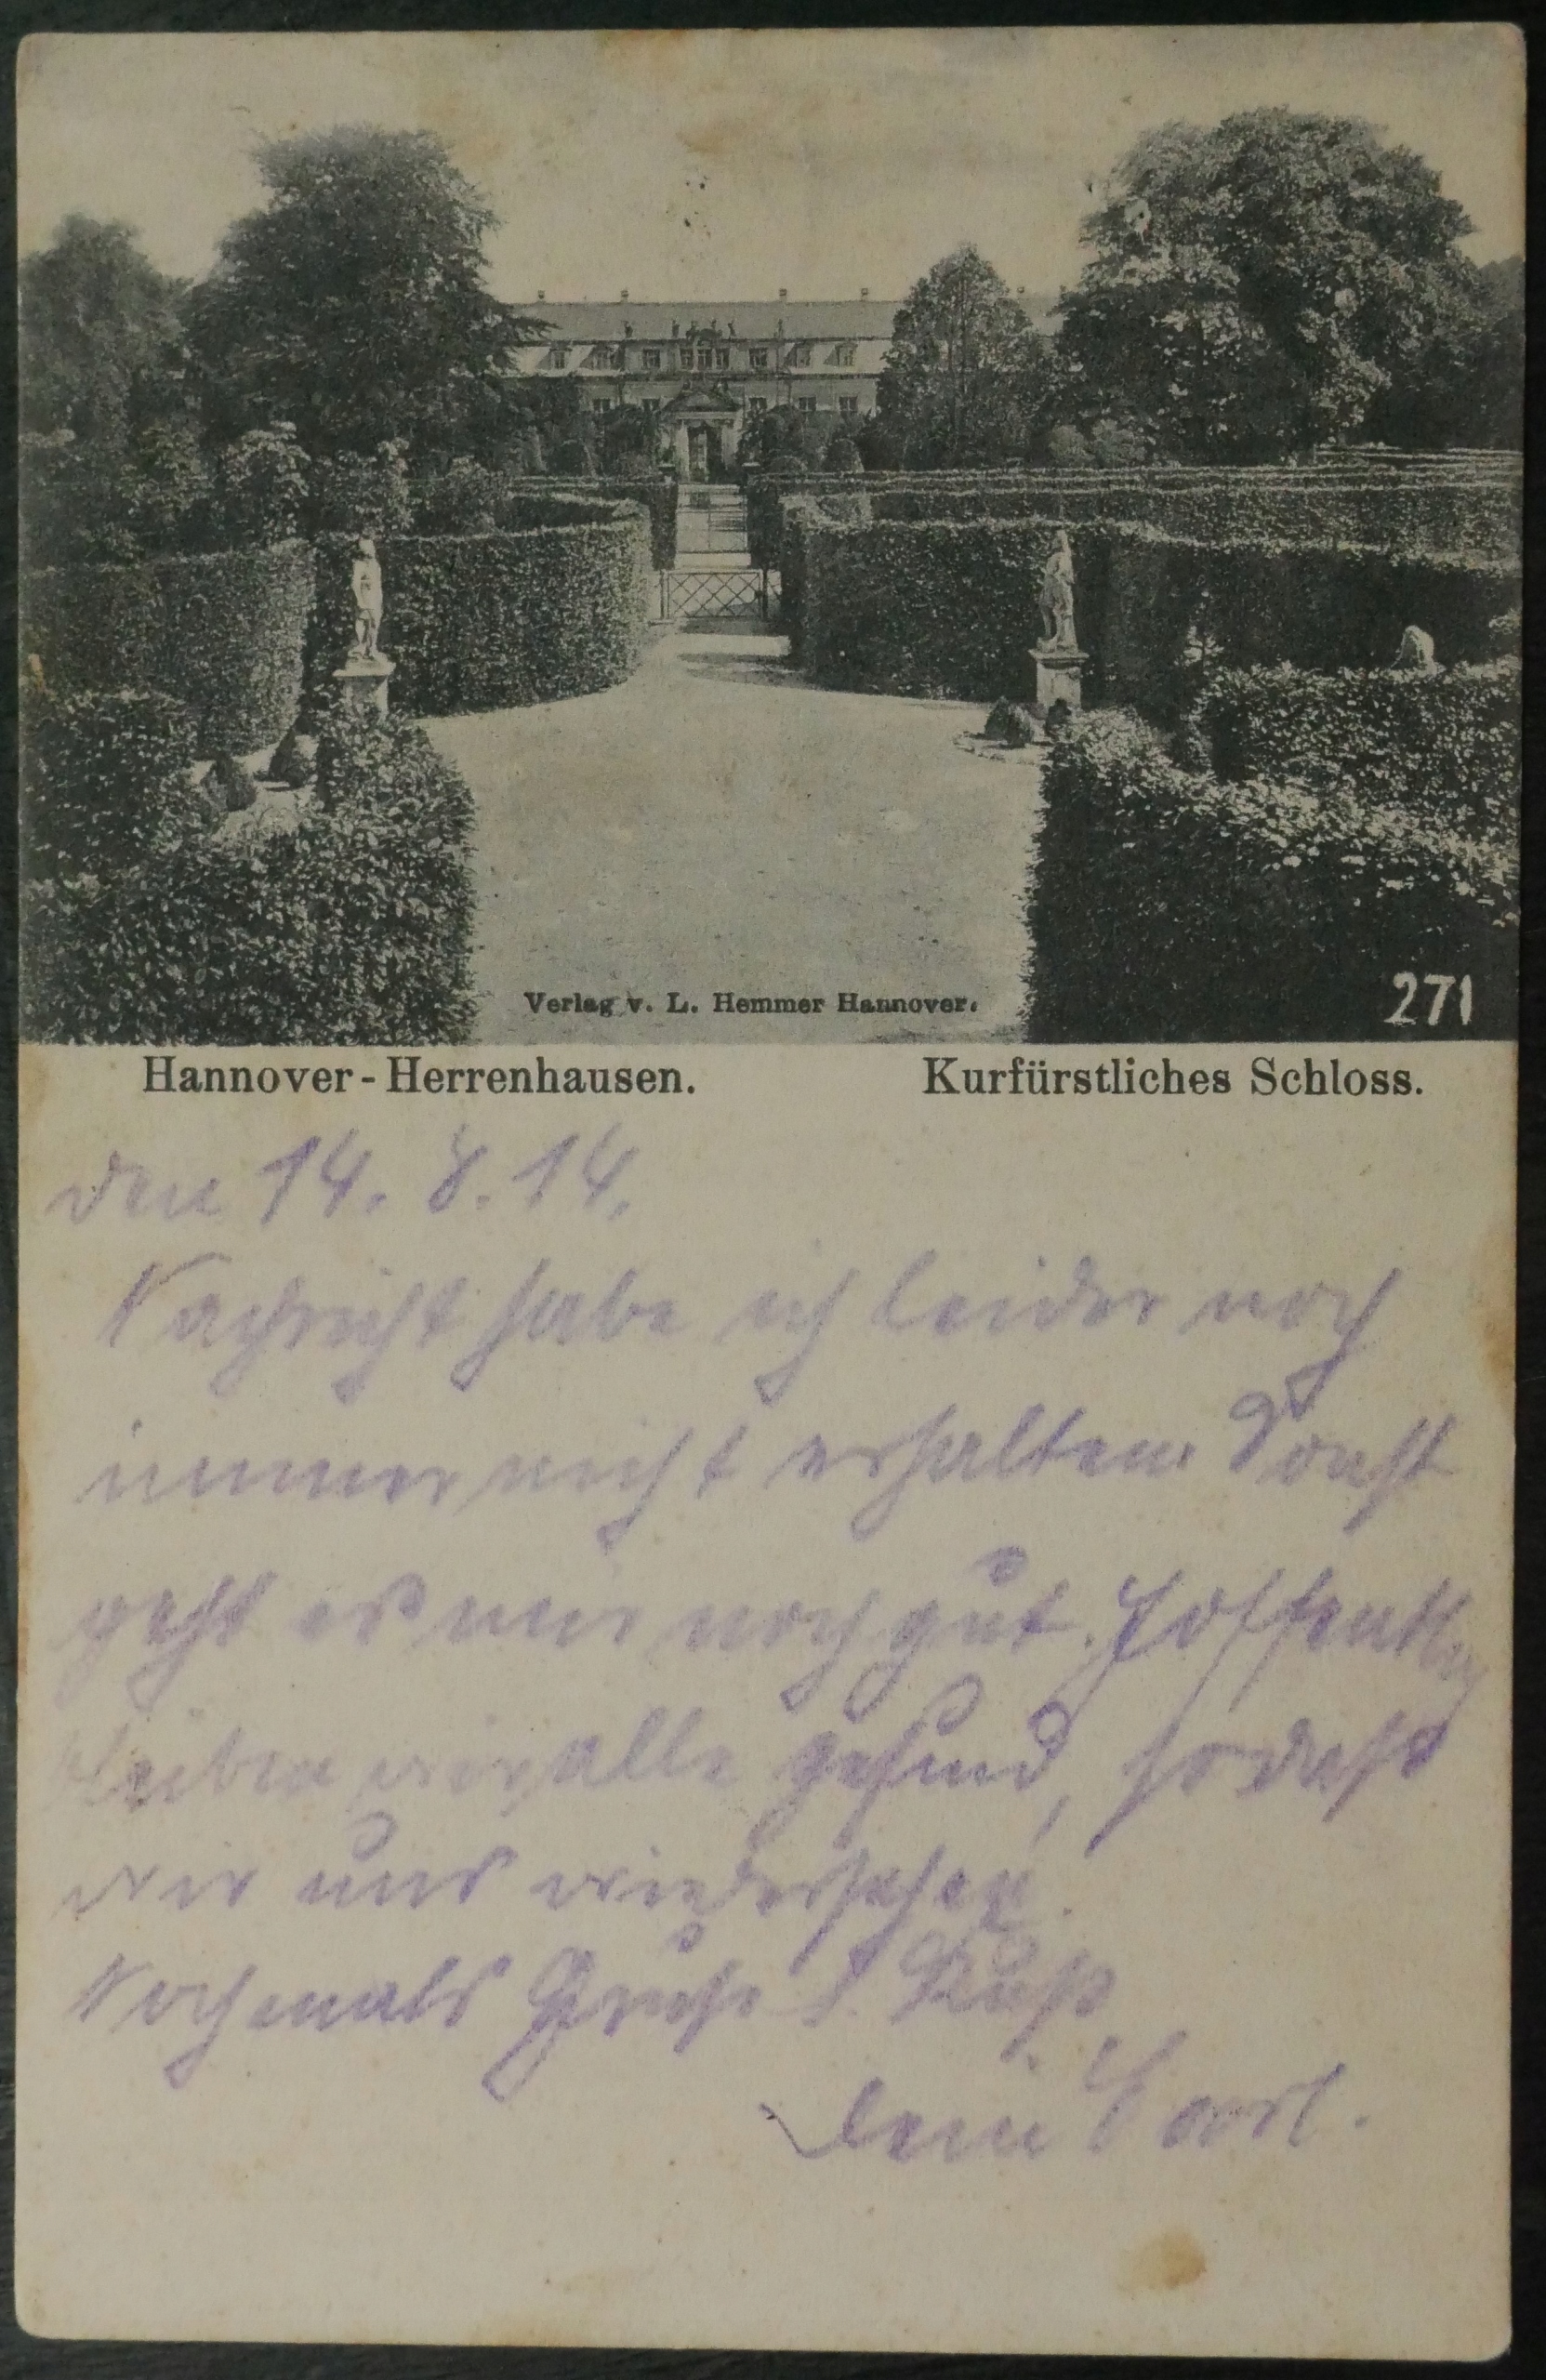 Verlag v. L. Hemmer Hannover.
271
Hannover-Herrenhausen. Kurfürstliches Schloss.
den 14. 8. 14.
Nachricht habe ich leider noch
immer nicht erhalten. Sonst
geht es mir noch gut. Hoffentlich
bleiben wir alle gesund, so daß
wir uns wiedersehen.
Nochmals Gruß & Kuß
Dein Carl.